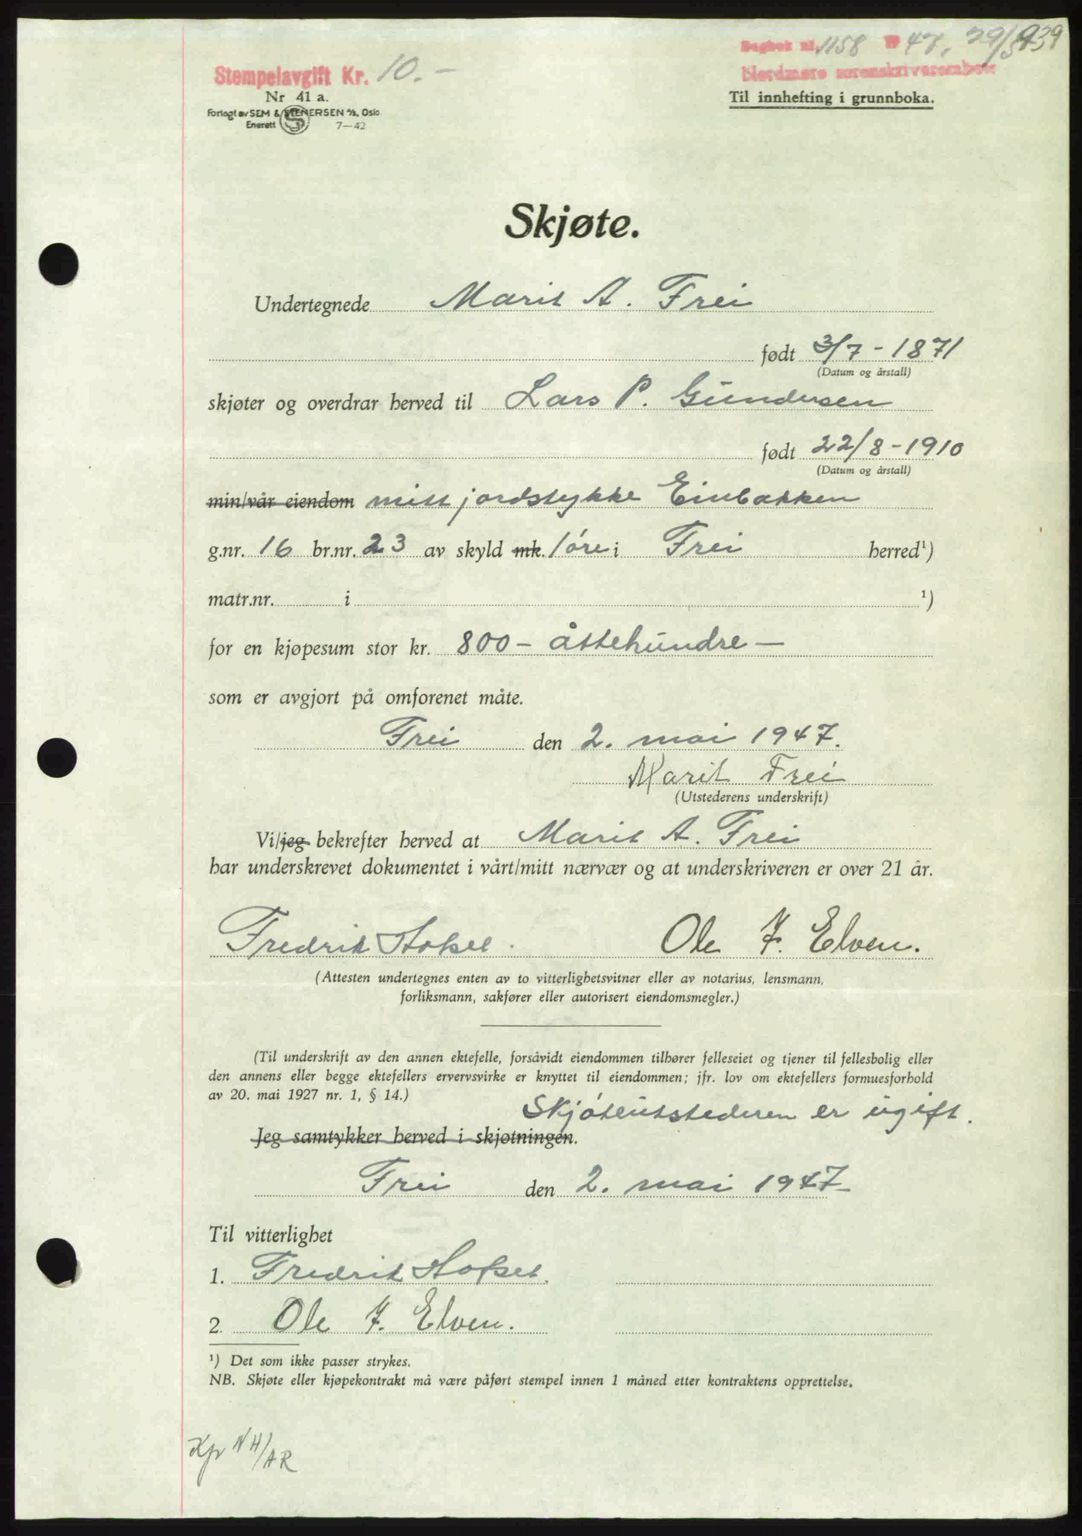 Dagbok nr. 1158 19 47. 29/5 939
Stempelavgift Kr. 10.-
Nordmøre sorenskriverembete
Nr 41 a.
Til innhefting i grunnboka.
Forlagt av SEM & STENERSEN A/S, Oslo
Enerett 7-42
Skjøte.
Undertegnede Marit A. Frei
født 3/7 - 1871
(Datum og årstall)
skjøter og overdrar herved til Lars P. Gundersen
født 22/8 - 1910
(Datum og årstall)
min/vår eiendom mitt jordstykke Einbakken
g.nr. 16 br.nr. 23 av skyld mk. 1 øre i Frei herred¹)
matr.nr. i ¹)
for en kjøpesum stor kr. 800 - åttehundre -
som er avgjort på omforenet måte.
Frei den 2. mai 1947.
Marit Frei
(Utstederens underskrift)
Vi/jeg bekrefter herved at Marit A. Frei
har underskrevet dokumentet i vårt/mitt nærvær og at underskriveren er over 21 år.
Fredrik Hoksel. Ole J. Elven.
(Attesten undertegnes enten av to vitterlighetsvitner eller av notarius, lensmann,
forliksmann, sakfører eller autorisert eiendomsmegler.)
(Til underskrift av den annen ektefelle, forsåvidt eiendommen tilhører felleseiet og tjener til fellesbolig eller
den annens eller begge ektefellers ervervsvirke er knyttet til eiendommen; jfr. lov om ektefellers formuesforhold
av 20. mai 1927 nr. 1, § 14.)
Skjøteutstederen er ugift.
Jeg samtykker herved i skjøtningen.
Frei den 2. mai 1947
Til vitterlighet
1. Fredrik
2. Ole J. Elven.
¹) Det som ikke passer strykes.
NB. Skjøte eller kjøpekontrakt må være påført stempel innen 1 måned etter kontraktens opprettelse.
Kpr NH/AR